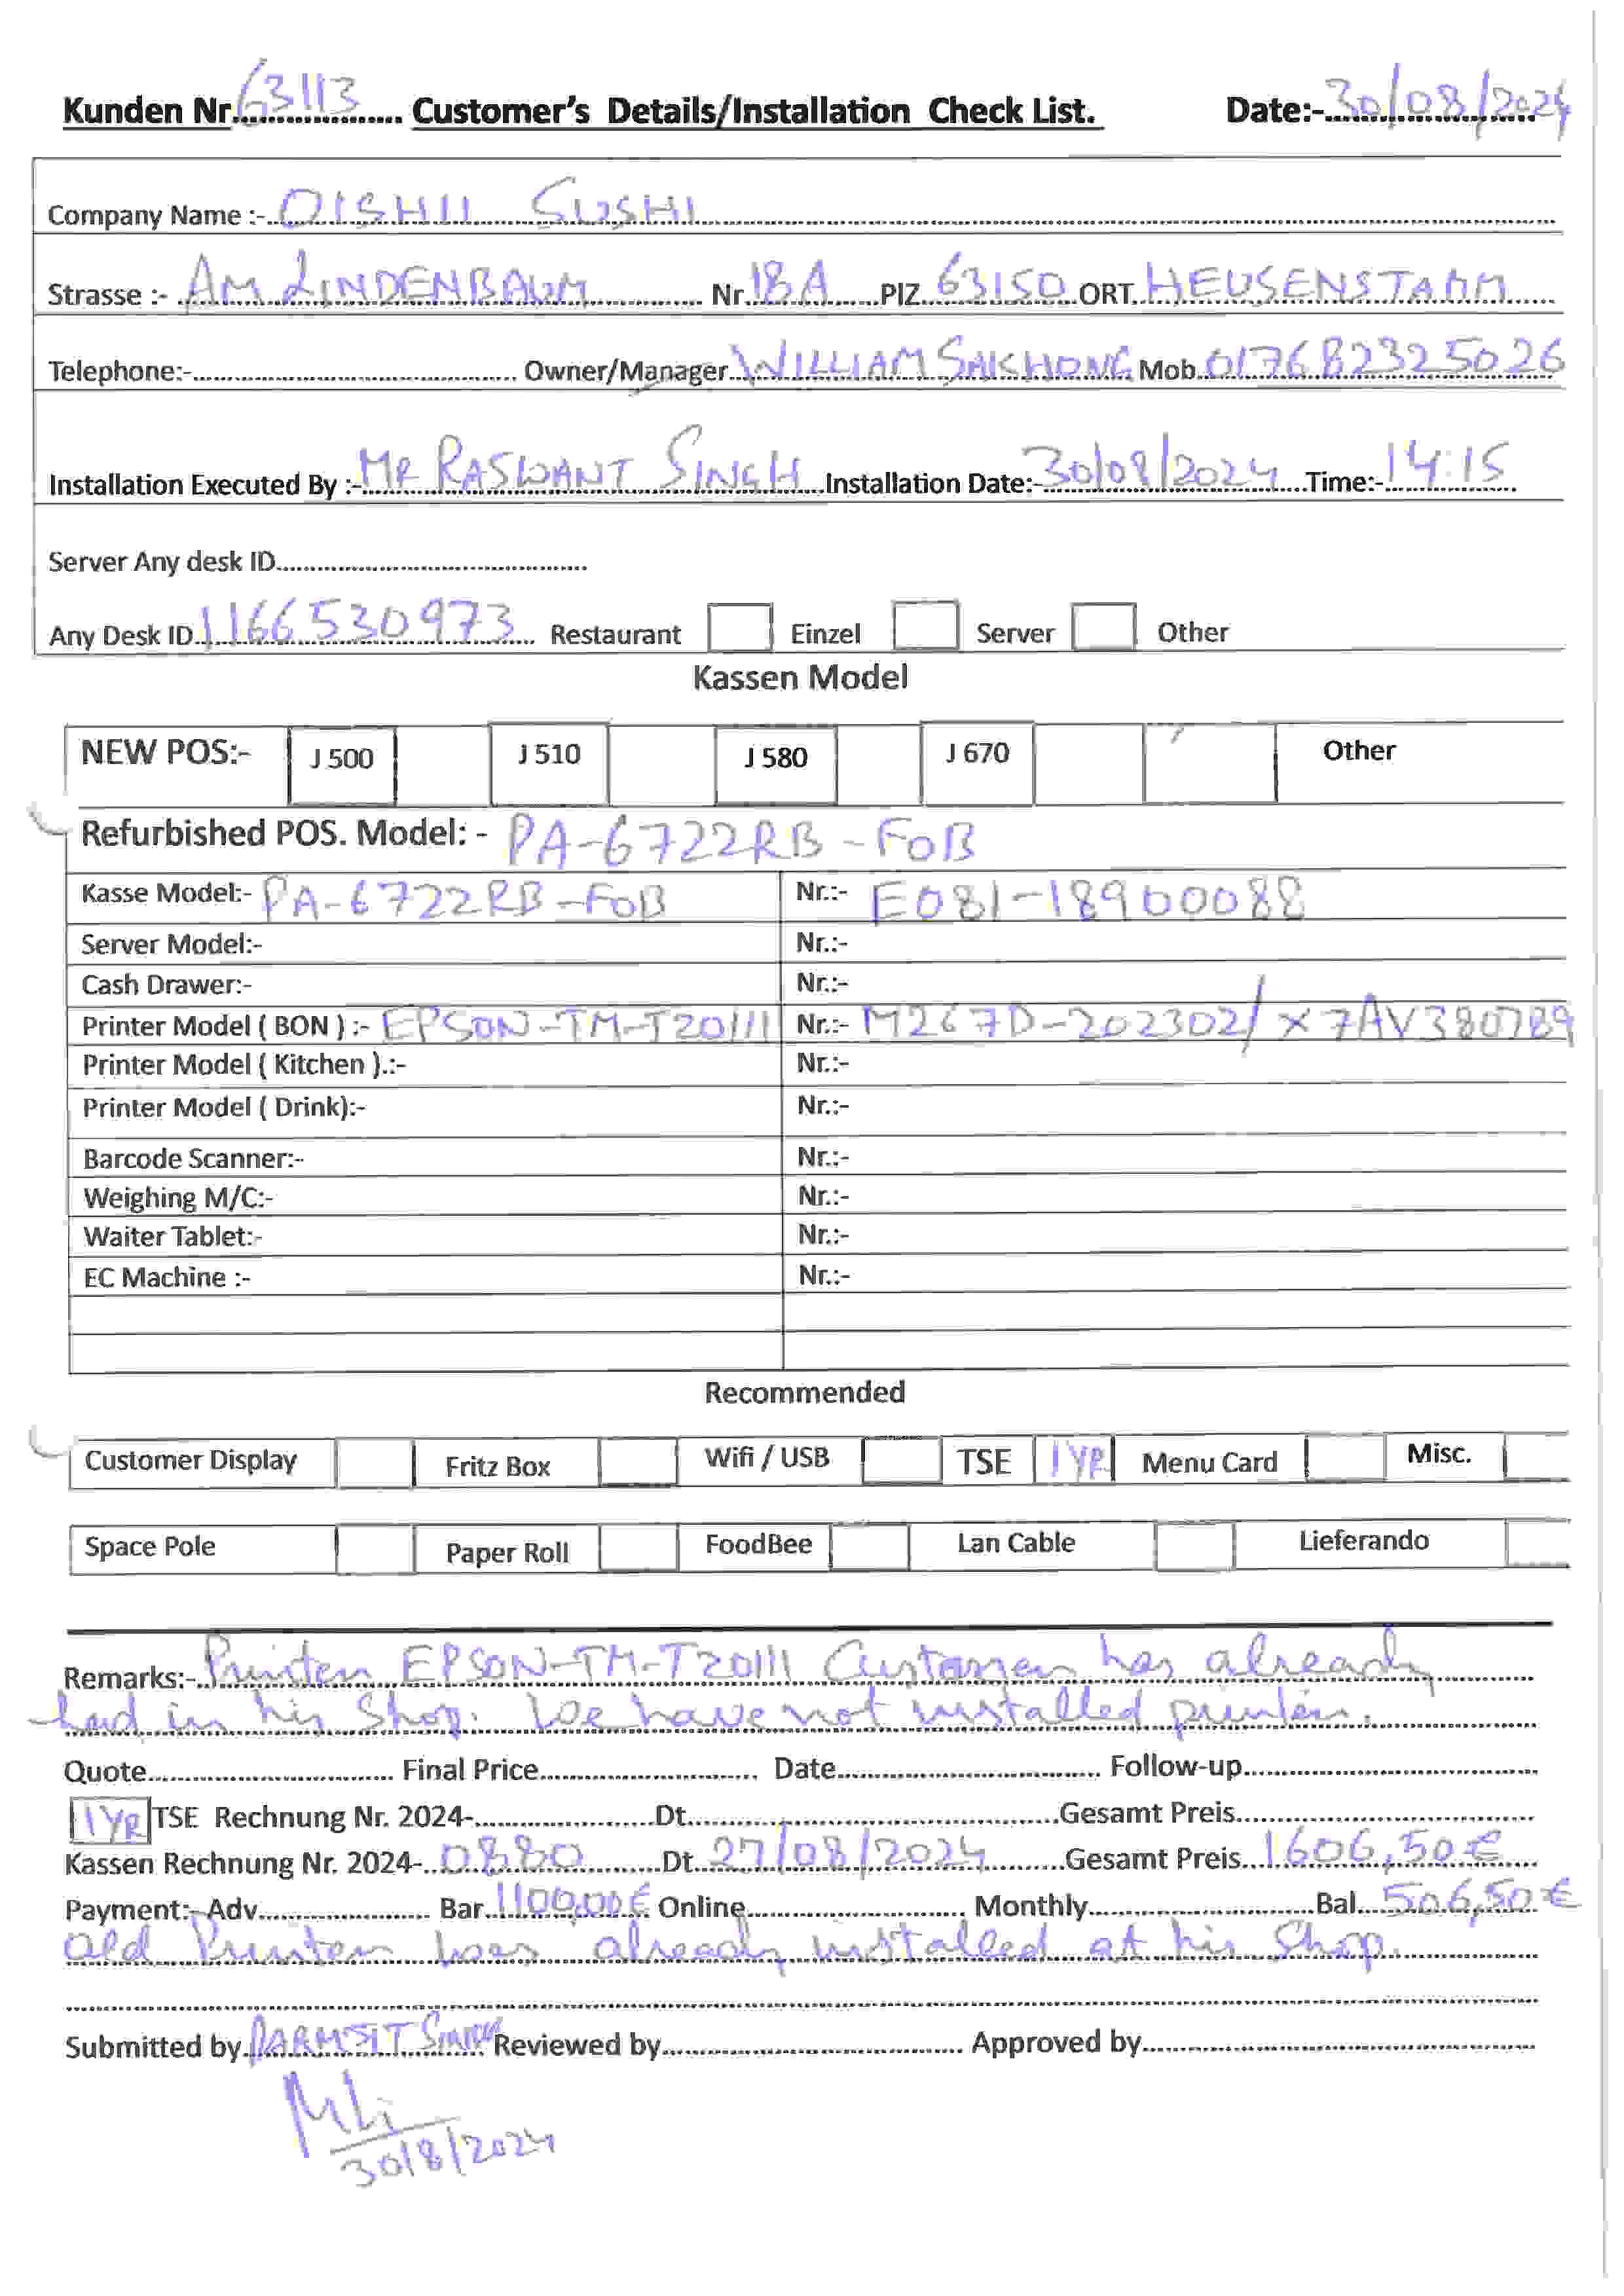 Kunden Nr.63113 Customer's Details/Installation Check List. Date:-30/08/2024
Company Name :- OISHII SUSHI
Strasse :- AM LINDENBAUM Nr. 18A PIZ. 63150 ORT. HEUSENSTAMM
Telephone:- Owner/Manager WILLIAM SAKHONG Mob. 017682325026
Installation Executed By :- MR RASWANT SINGH Installation Date:- 30/08/2024 Time:- 14:15
Server Any desk ID
Any Desk ID 1166530973 Restaurant Einzel Server Other
Kassen Model
NEW POS:- J 500 J 510 J 580 J 670 Other
Refurbished POS. Model: - PA-6722RB-FOB
Kasse Model:- PA-6722RB-FOB Nr.:- E081-18900088
Server Model:- Nr.:-
Cash Drawer:- Nr.:-
Printer Model ( BON ) :- EPSON-TM-T20III Nr.:- M267D-202302/X7AV380789
Printer Model ( Kitchen ).:- Nr.:-
Printer Model ( Drink):- Nr.:-
Barcode Scanner:- Nr.:-
Weighing M/C:- Nr.:-
Waiter Tablet:- Nr.:-
EC Machine :- Nr.:-
Recommended
Customer Display Fritz Box Wifi / USB TSE 1 YR Menu Card Misc.
Space Pole Paper Roll FoodBee Lan Cable Lieferando
Remarks:- Printer EPSON-TM-T20III Customer has already
had in his Shop. We have not installed printer.
Quote Final Price Date Follow-up
1 YR TSE Rechnung Nr. 2024- Dt. Gesamt Preis
Kassen Rechnung Nr. 2024- 0880 Dt. 27/08/2024 Gesamt Preis 1606,50 €
Payment:- Adv. Bar. 1100,00 € Online Monthly Bal. 506,50 €
Old Printer has already installed at his Shop.
Submitted by PARMJIT SINGH Reviewed by Approved by
30/8/2024